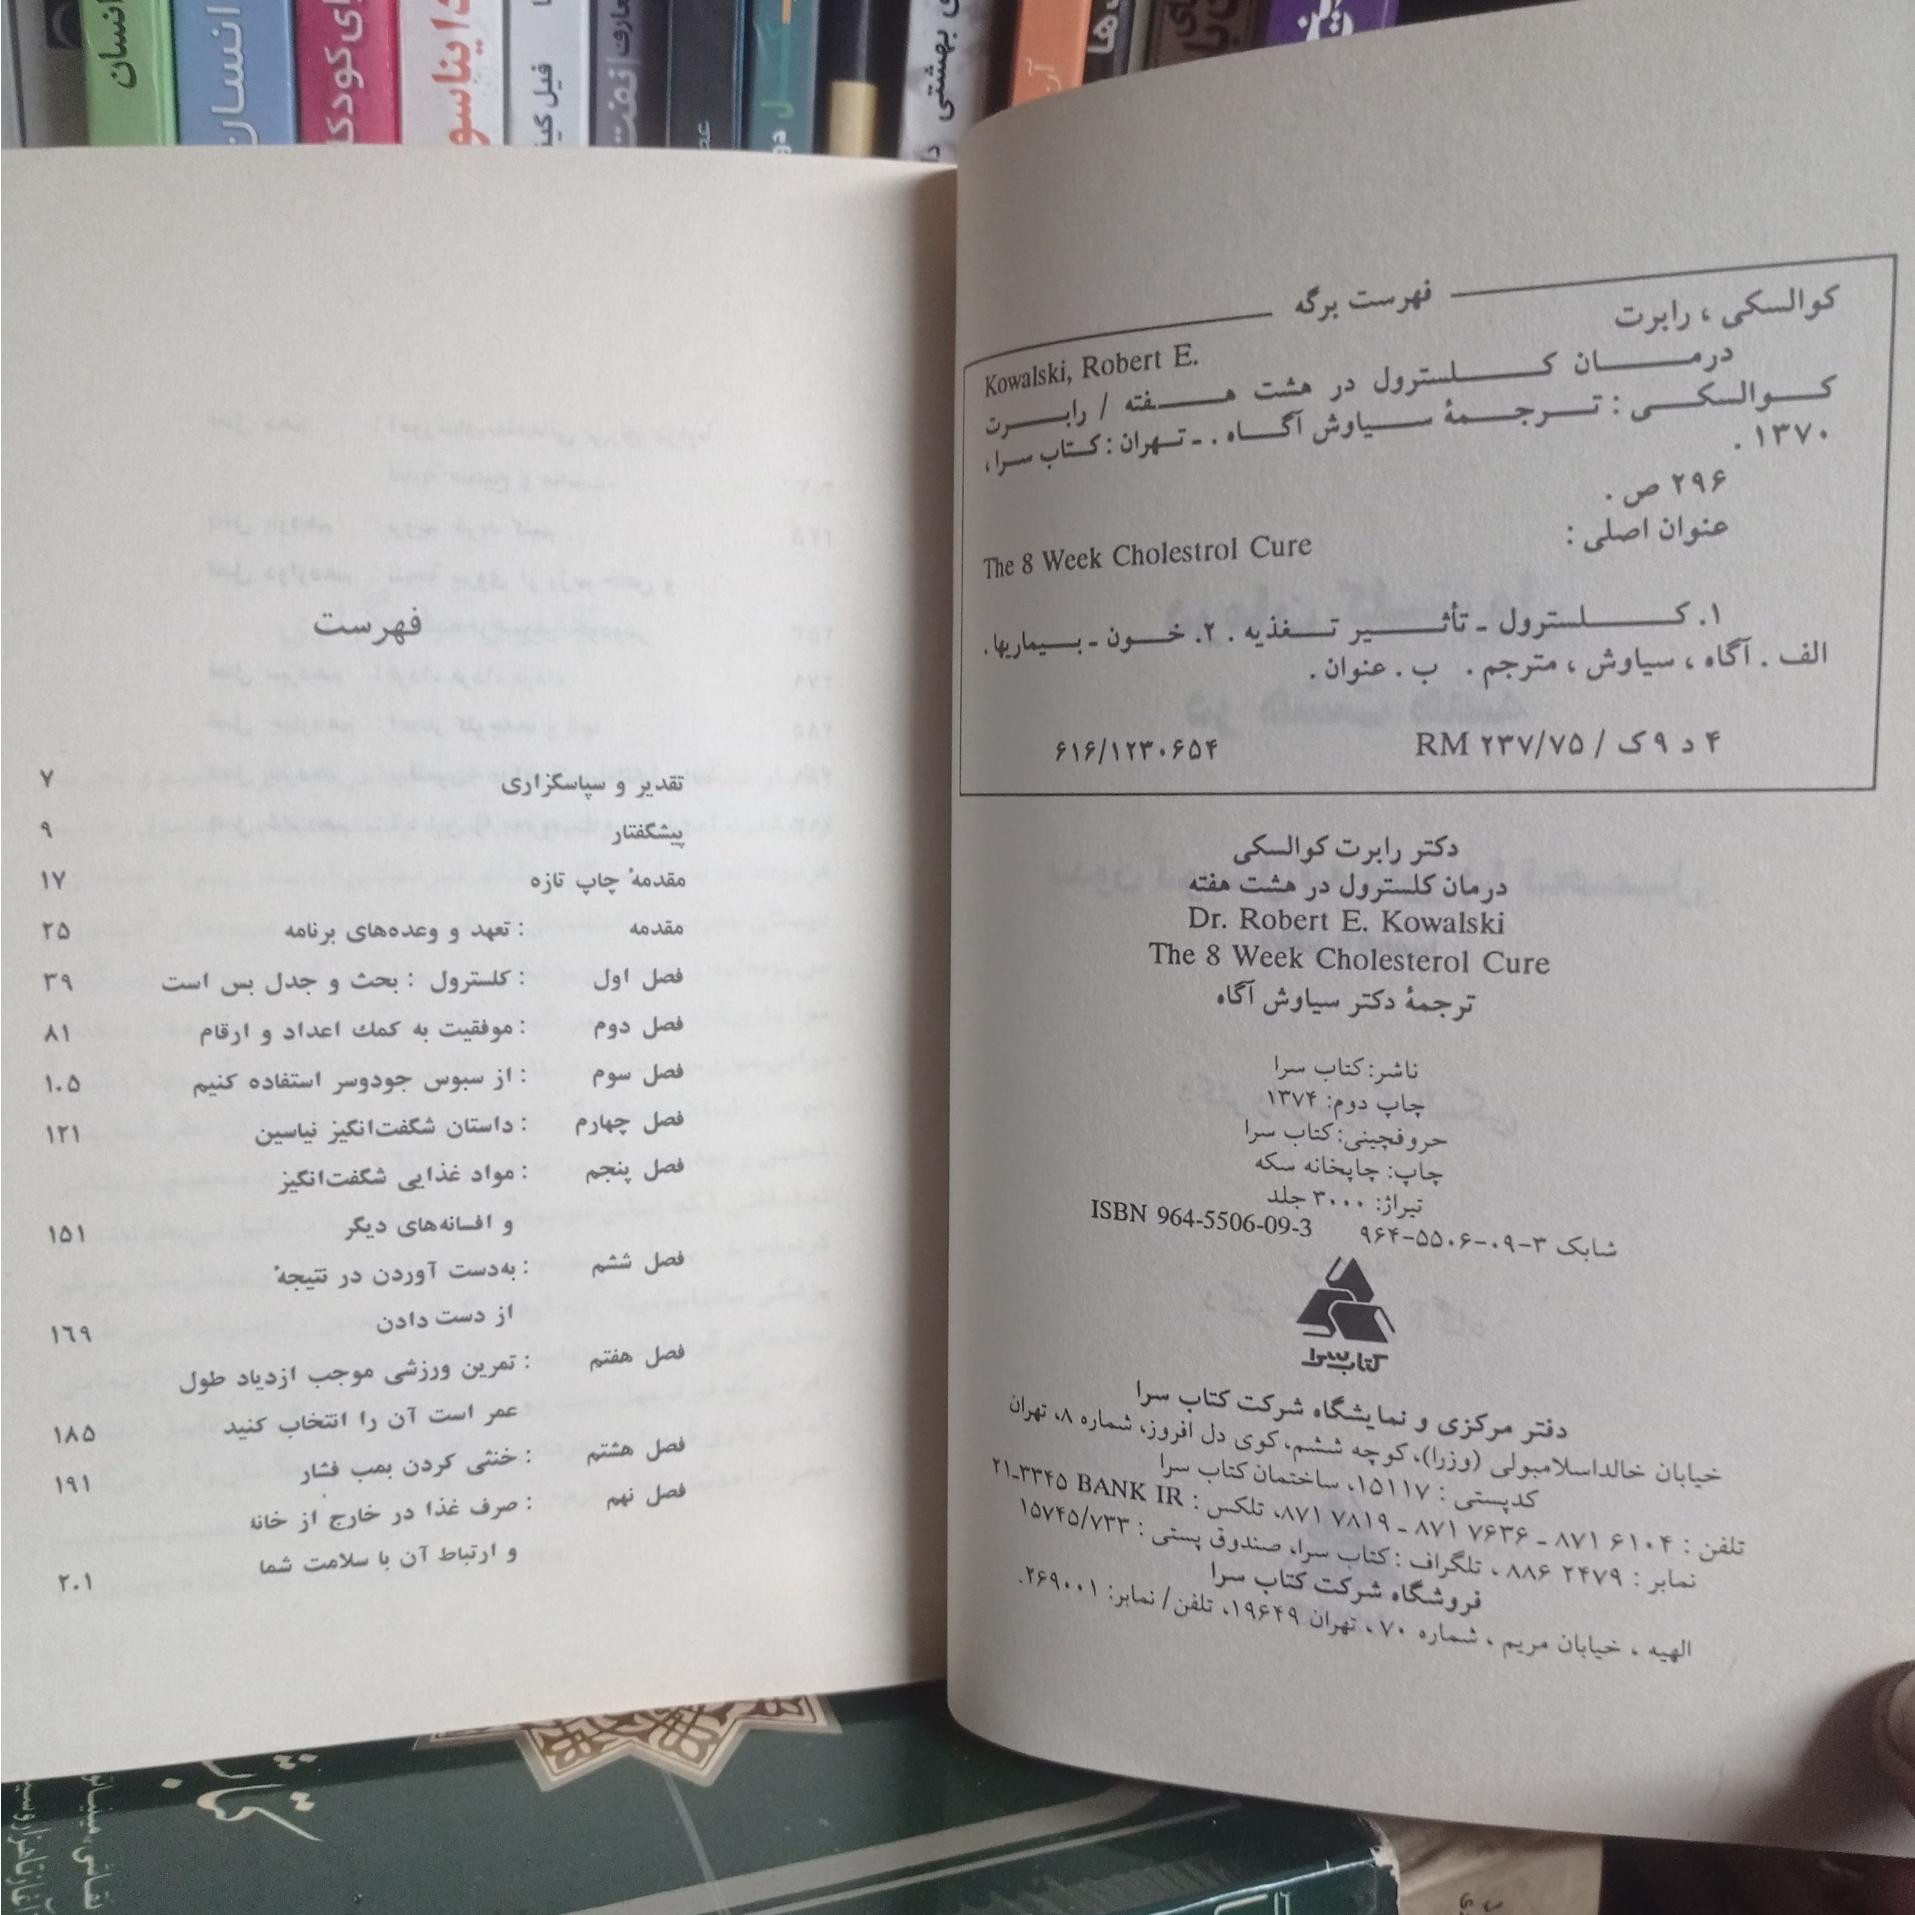 انسان
انسان
ای کودک
دایناسو
فیل گید
معارف انقت
عص
ی بهشتی
آن
ها
فهرست برگه
کوالسکی ، رابرت
Kowalski, Robert E.
درمـــــان کـــــلسترول در هشت هـــــفته / رابـــــرت
کـــوالسکـــی : تـــرجـــمهٔ سـیاوش آگـاه . ـ تـهران : کـتاب سـرا ،
۱۳۷۰ .
۲۹۶ ص .
عنوان اصلی :
The 8 Week Cholestrol Cure
۱. کـــــلسترول ـ تأثـــــیر تـــغذیه . ۲. خـــون ـ بـــیماریها .
الف . آگاه ، سیاوش ، مترجم . ب . عنوان .
۴ د ۹ ک / ۷۵/ RM ۲۳۷
۶۱۶/۱۲۳۰۶۵۴
دکتر رابرت کوالسکی
درمان کلسترول در هشت هفته
Dr. Robert E. Kowalski
The 8 Week Cholesterol Cure
ترجمهٔ دکتر سیاوش آگاه
ناشر: کتاب سرا
چاپ دوم: ۱۳۷۴
حروفچینی: کتاب سرا
چاپ: چاپخانه سکه
تیراژ: ۳۰۰۰ جلد
شابک ۳-۰۹-۵۵۰۶-۹۶۴ ISBN 964-5506-09-3
کتاب سرا
دفتر مرکزی و نمایشگاه شرکت کتاب سرا
خیابان خالداسلامبولی (وزرا)، کوچه ششم، کوی دل افروز، شماره ۸، تهران
کدپستی : ۱۵۱۱۷، ساختمان کتاب سرا
تلفن : ۶۱۰۴ ۸۷۱ ـ ۷۶۳۶ ۸۷۱ ـ ۷۸۱۹ ۸۷۱، تلکس : BANK IR ۲۱-۳۳۴۵
نمابر : ۲۴۷۹ ۸۸۶ ، تلگراف : کتاب سرا، صندوق پستی : ۱۵۷۴۵/۷۳۳
فروشگاه شرکت کتاب سرا
الهیه ، خیابان مریم ، شماره ۷۰ ، تهران ۱۹۶۴۹، تلفن/ نمابر: ۲۶۹۰۰۱.
فهرست
تقدیر و سپاسگزاری ۷
پیشگفتار ۹
مقدمهٔ چاپ تازه ۱۷
مقدمه : تعهد و وعده‌های برنامه ۲۵
فصل اول : کلسترول : بحث و جدل بس است ۳۹
فصل دوم : موفقیت به کمك اعداد و ارقام ۸۱
فصل سوم : از سبوس جودوسر استفاده کنیم ۱۰۵
فصل چهارم : داستان شگفت‌انگیز نیاسین ۱۲۱
فصل پنجم : مواد غذایی شگفت‌انگیز
و افسانه‌های دیگر ۱۵۱
فصل ششم : به‌دست آوردن در نتیجهٔ
از دست دادن ۱۶۹
فصل هفتم : تمرین ورزشی موجب ازدیاد طول
عمر است آن را انتخاب کنید ۱۸۵
فصل هشتم : خنثی کردن بمب فشار ۱۹۱
فصل نهم : صرف غذا در خارج از خانه
و ارتباط آن با سلامت شما ۲۰۱